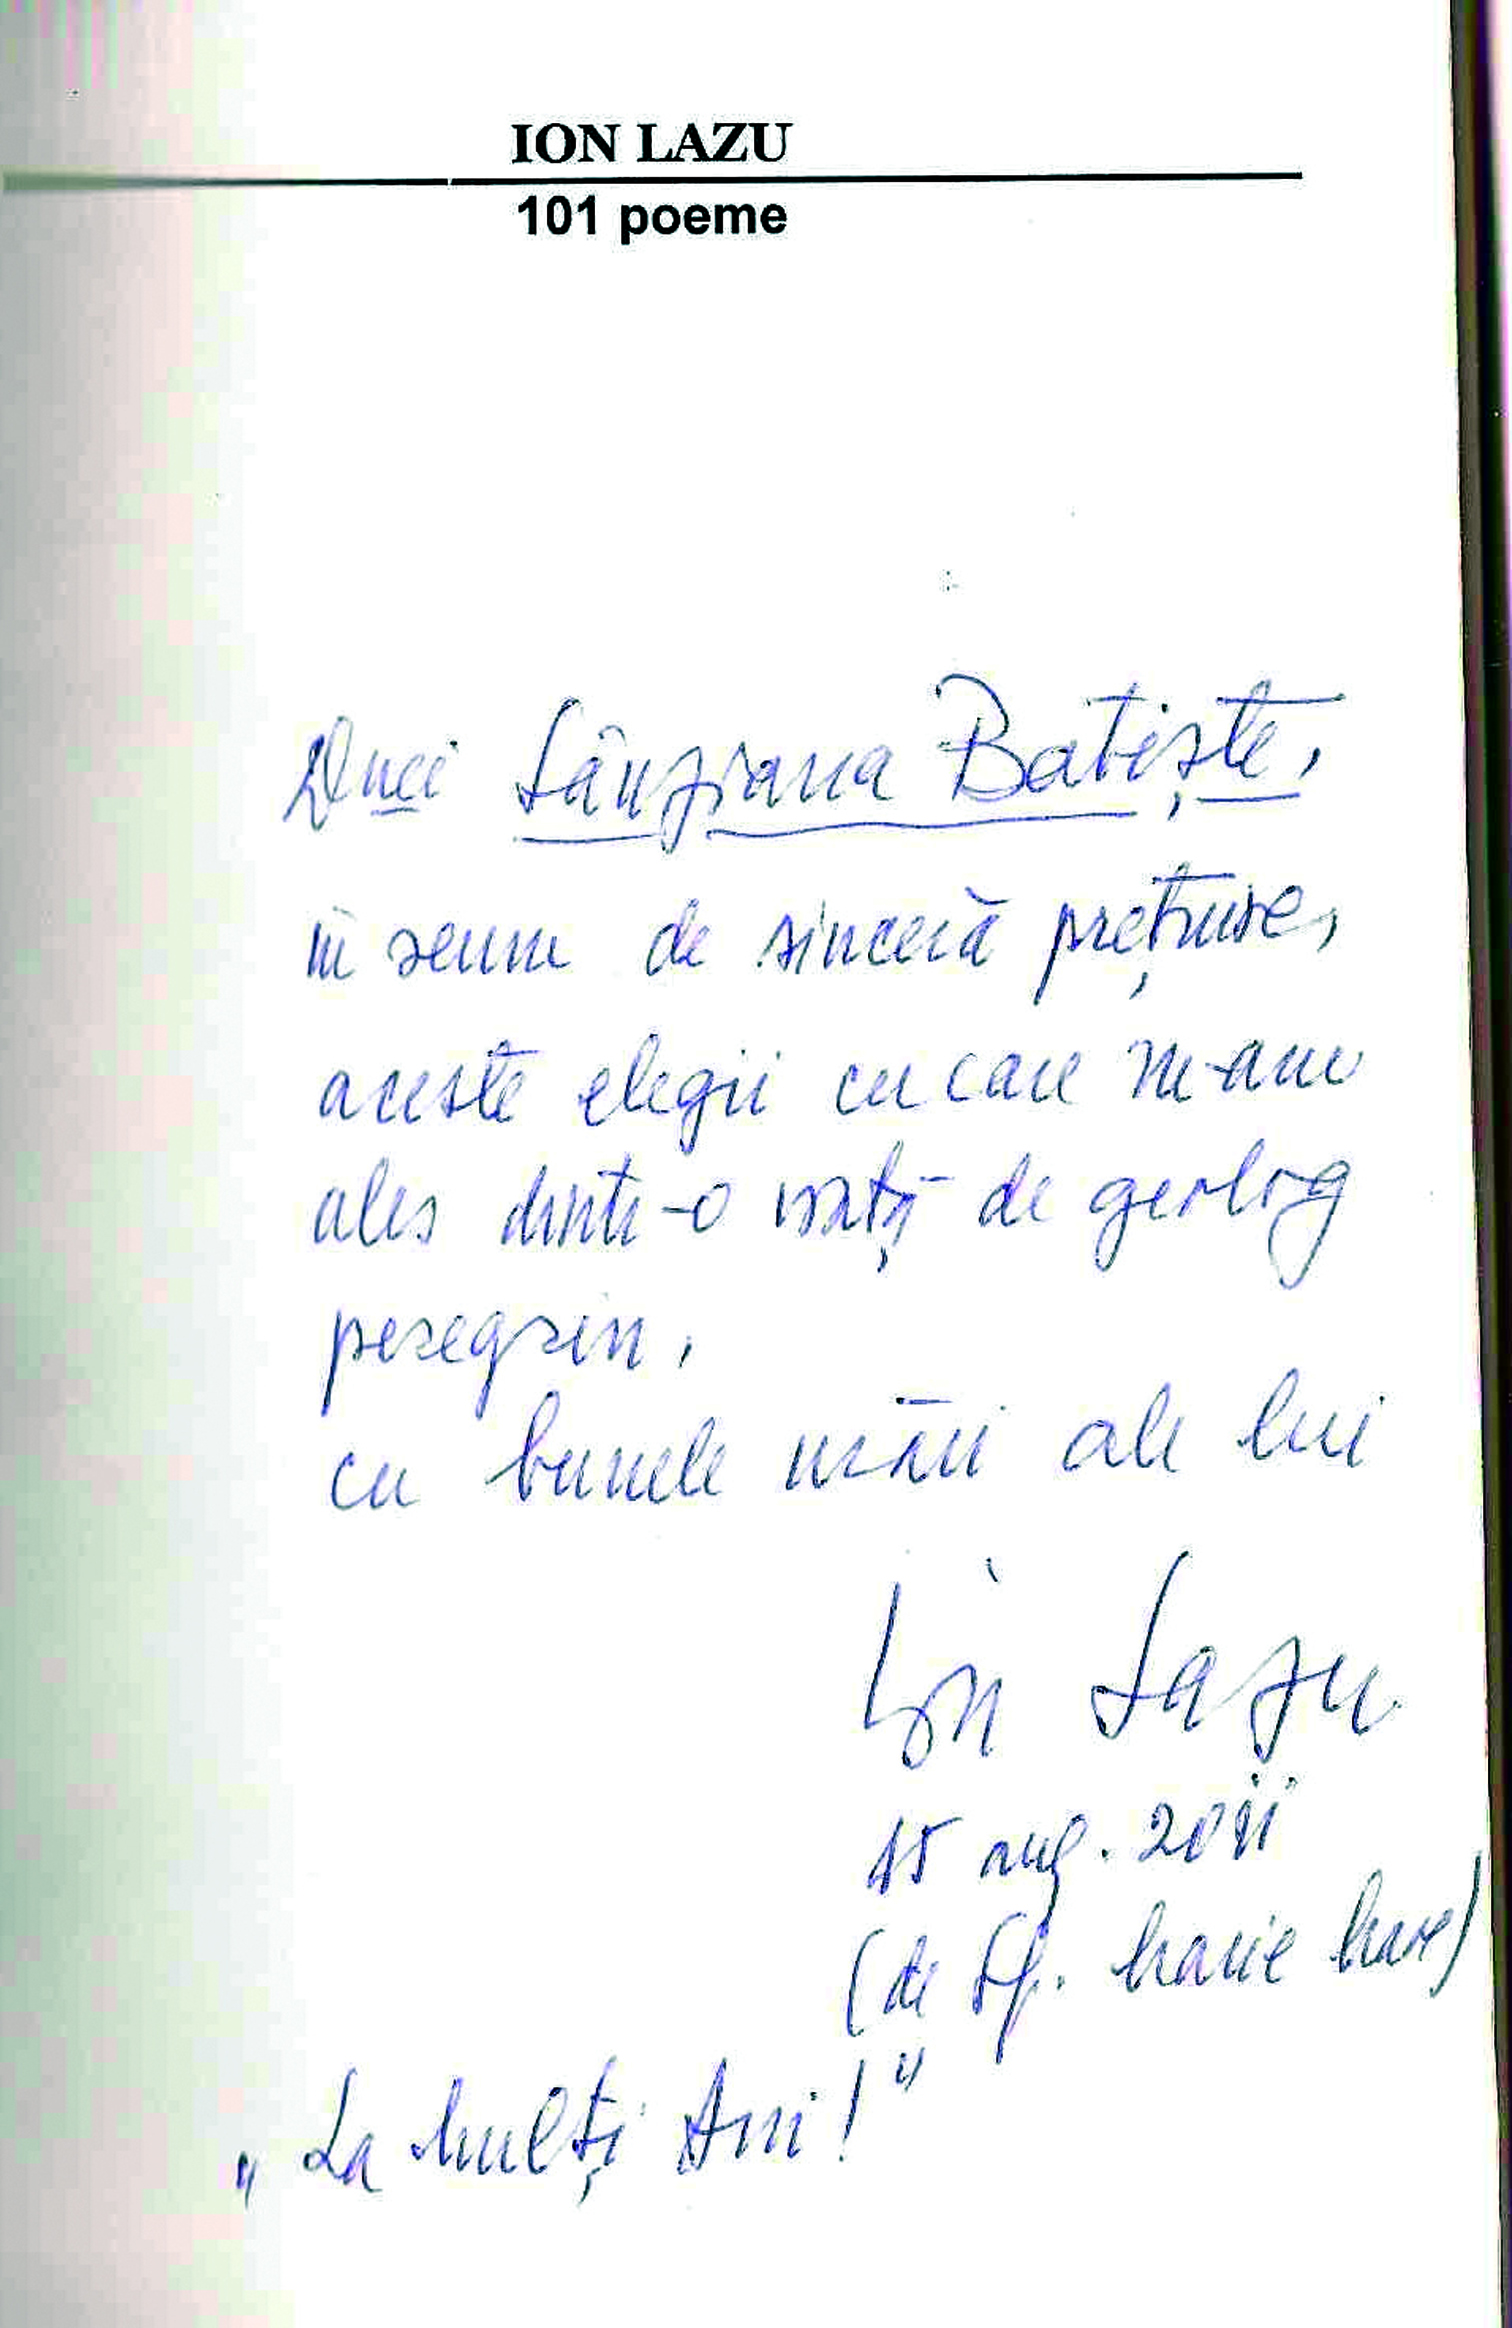 ION LAZU
101 poeme
Dnei Sânziana Batiște,
în semn de sinceră prețuire,
aceste elegii cu care m-am
ales dintr-o viață de geolog
peregrin,
cu bunele urări ale lui
Ion Lazu
15 aug. 2011
(de Sf. Marie Mare)
„La Mulți Ani!”